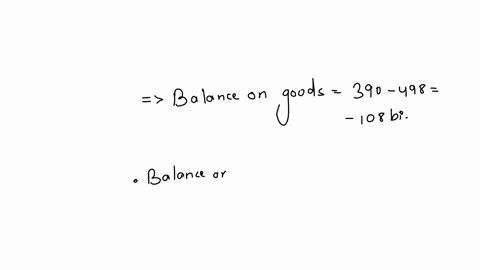 => Balance on goods = 390 - 498 =
- 108 bi.
• Balance or